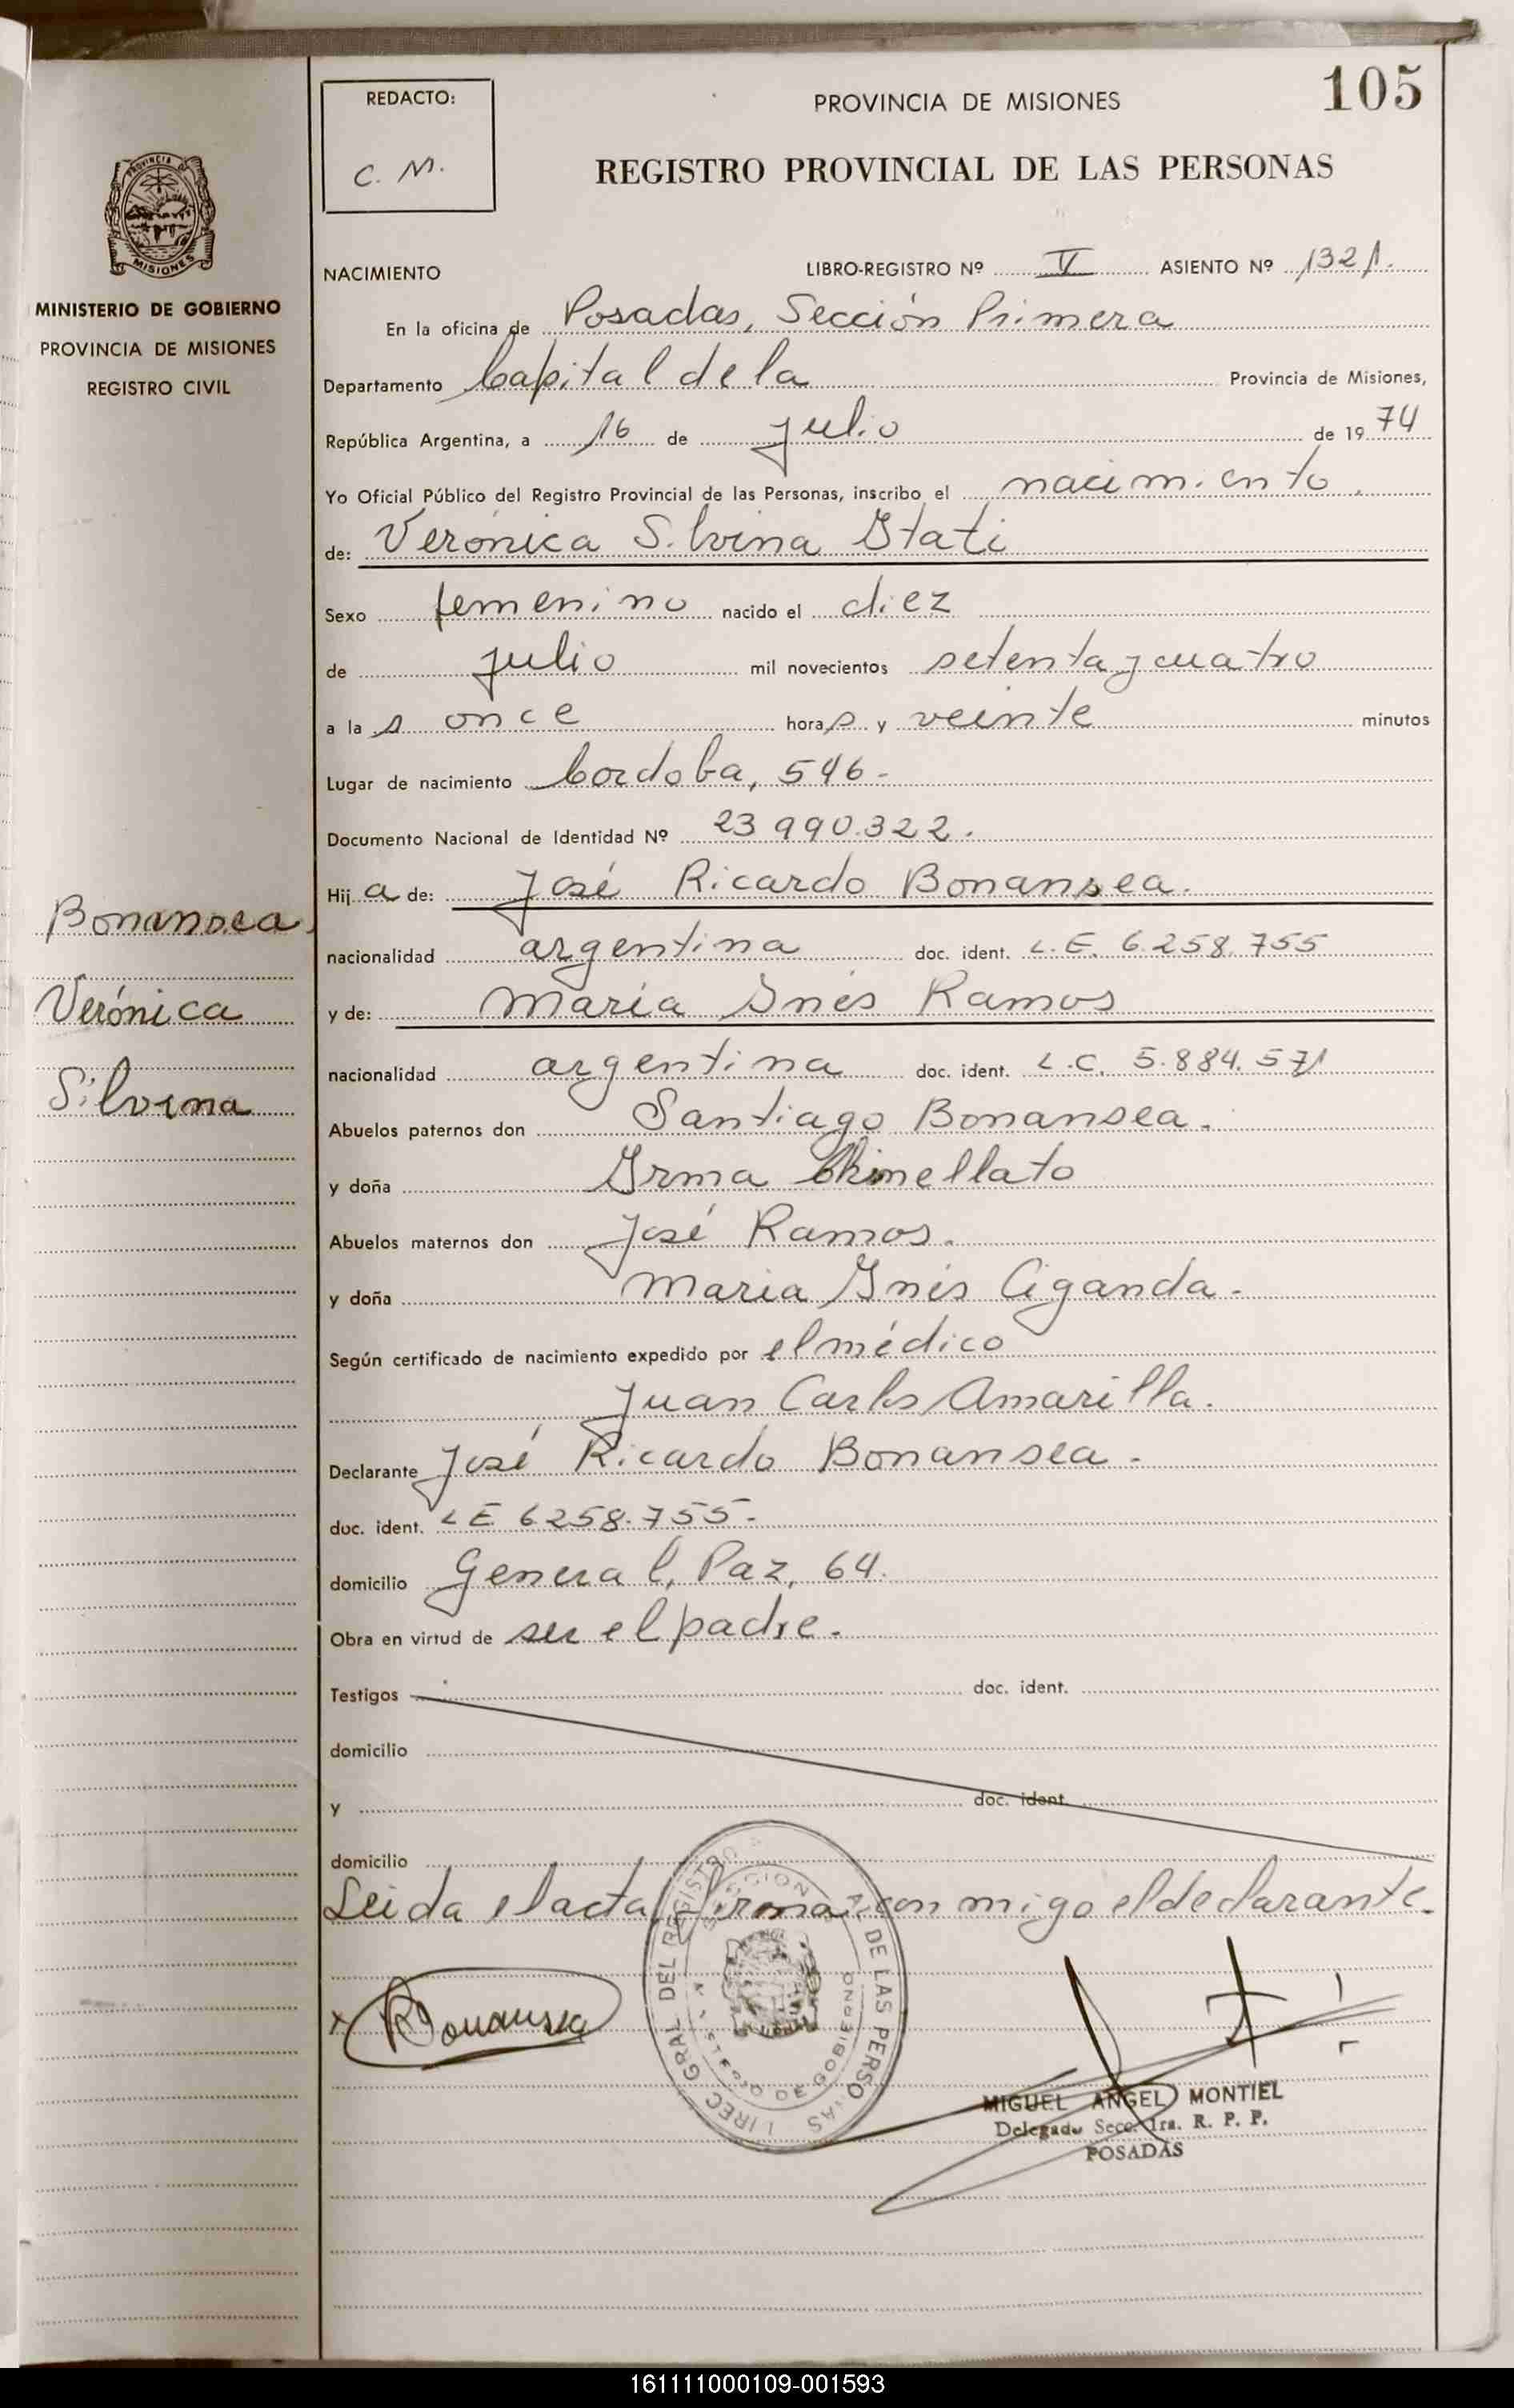 105
REDACTO:
C. M.
PROVINCIA DE MISIONES
REGISTRO PROVINCIAL DE LAS PERSONAS
PROVINCIA DE
MISIONES
MINISTERIO DE GOBIERNO
PROVINCIA DE MISIONES
REGISTRO CIVIL
NACIMIENTO LIBRO-REGISTRO Nº V ASIENTO Nº 1321.
En la oficina de Posadas, Sección Primera
Departamento Capital de la Provincia de Misiones,
República Argentina, a 16 de julio de 1974
Yo Oficial Público del Registro Provincial de las Personas, inscribo el nacimiento.
de: Verónica Silvina Itati
Sexo femenino nacido el diez
de julio mil novecientos setenta y cuatro
a la s once horas y veinte minutos
Lugar de nacimiento Cordoba, 546-
Documento Nacional de Identidad Nº 23 990.322.
Hij a de: José Ricardo Bonansea.
Bonansea
nacionalidad argentina doc. ident. L. E. 6.258.755
Verónica
y de: María Inés Ramos
nacionalidad argentina doc. ident. L.C. 5.884.571
Silvina
Abuelos paternos don Santiago Bonansea.
y doña Irma Chimellato
Abuelos maternos don José Ramos.
y doña Maria Inés Ciganda.
Según certificado de nacimiento expedido por el médico
Juan Carlos Amarilla.
Declarante José Ricardo Bonansea.
doc. ident. LE 6258.755-
domicilio General, Paz, 64.
Obra en virtud de ser el padre.
Testigos doc. ident.
domicilio
y doc. ident.
domicilio
Leida el acta, firma con migo el declarante.
x RBonansea
DIREC. GRAL. DEL REGISTRO DE LAS PERSONAS
MINISTERIO DE GOBIERNO
MIGUEL ANGEL MONTIEL
Delegado Secc. 1ra. R. P. P.
POSADAS
161111000109-001593